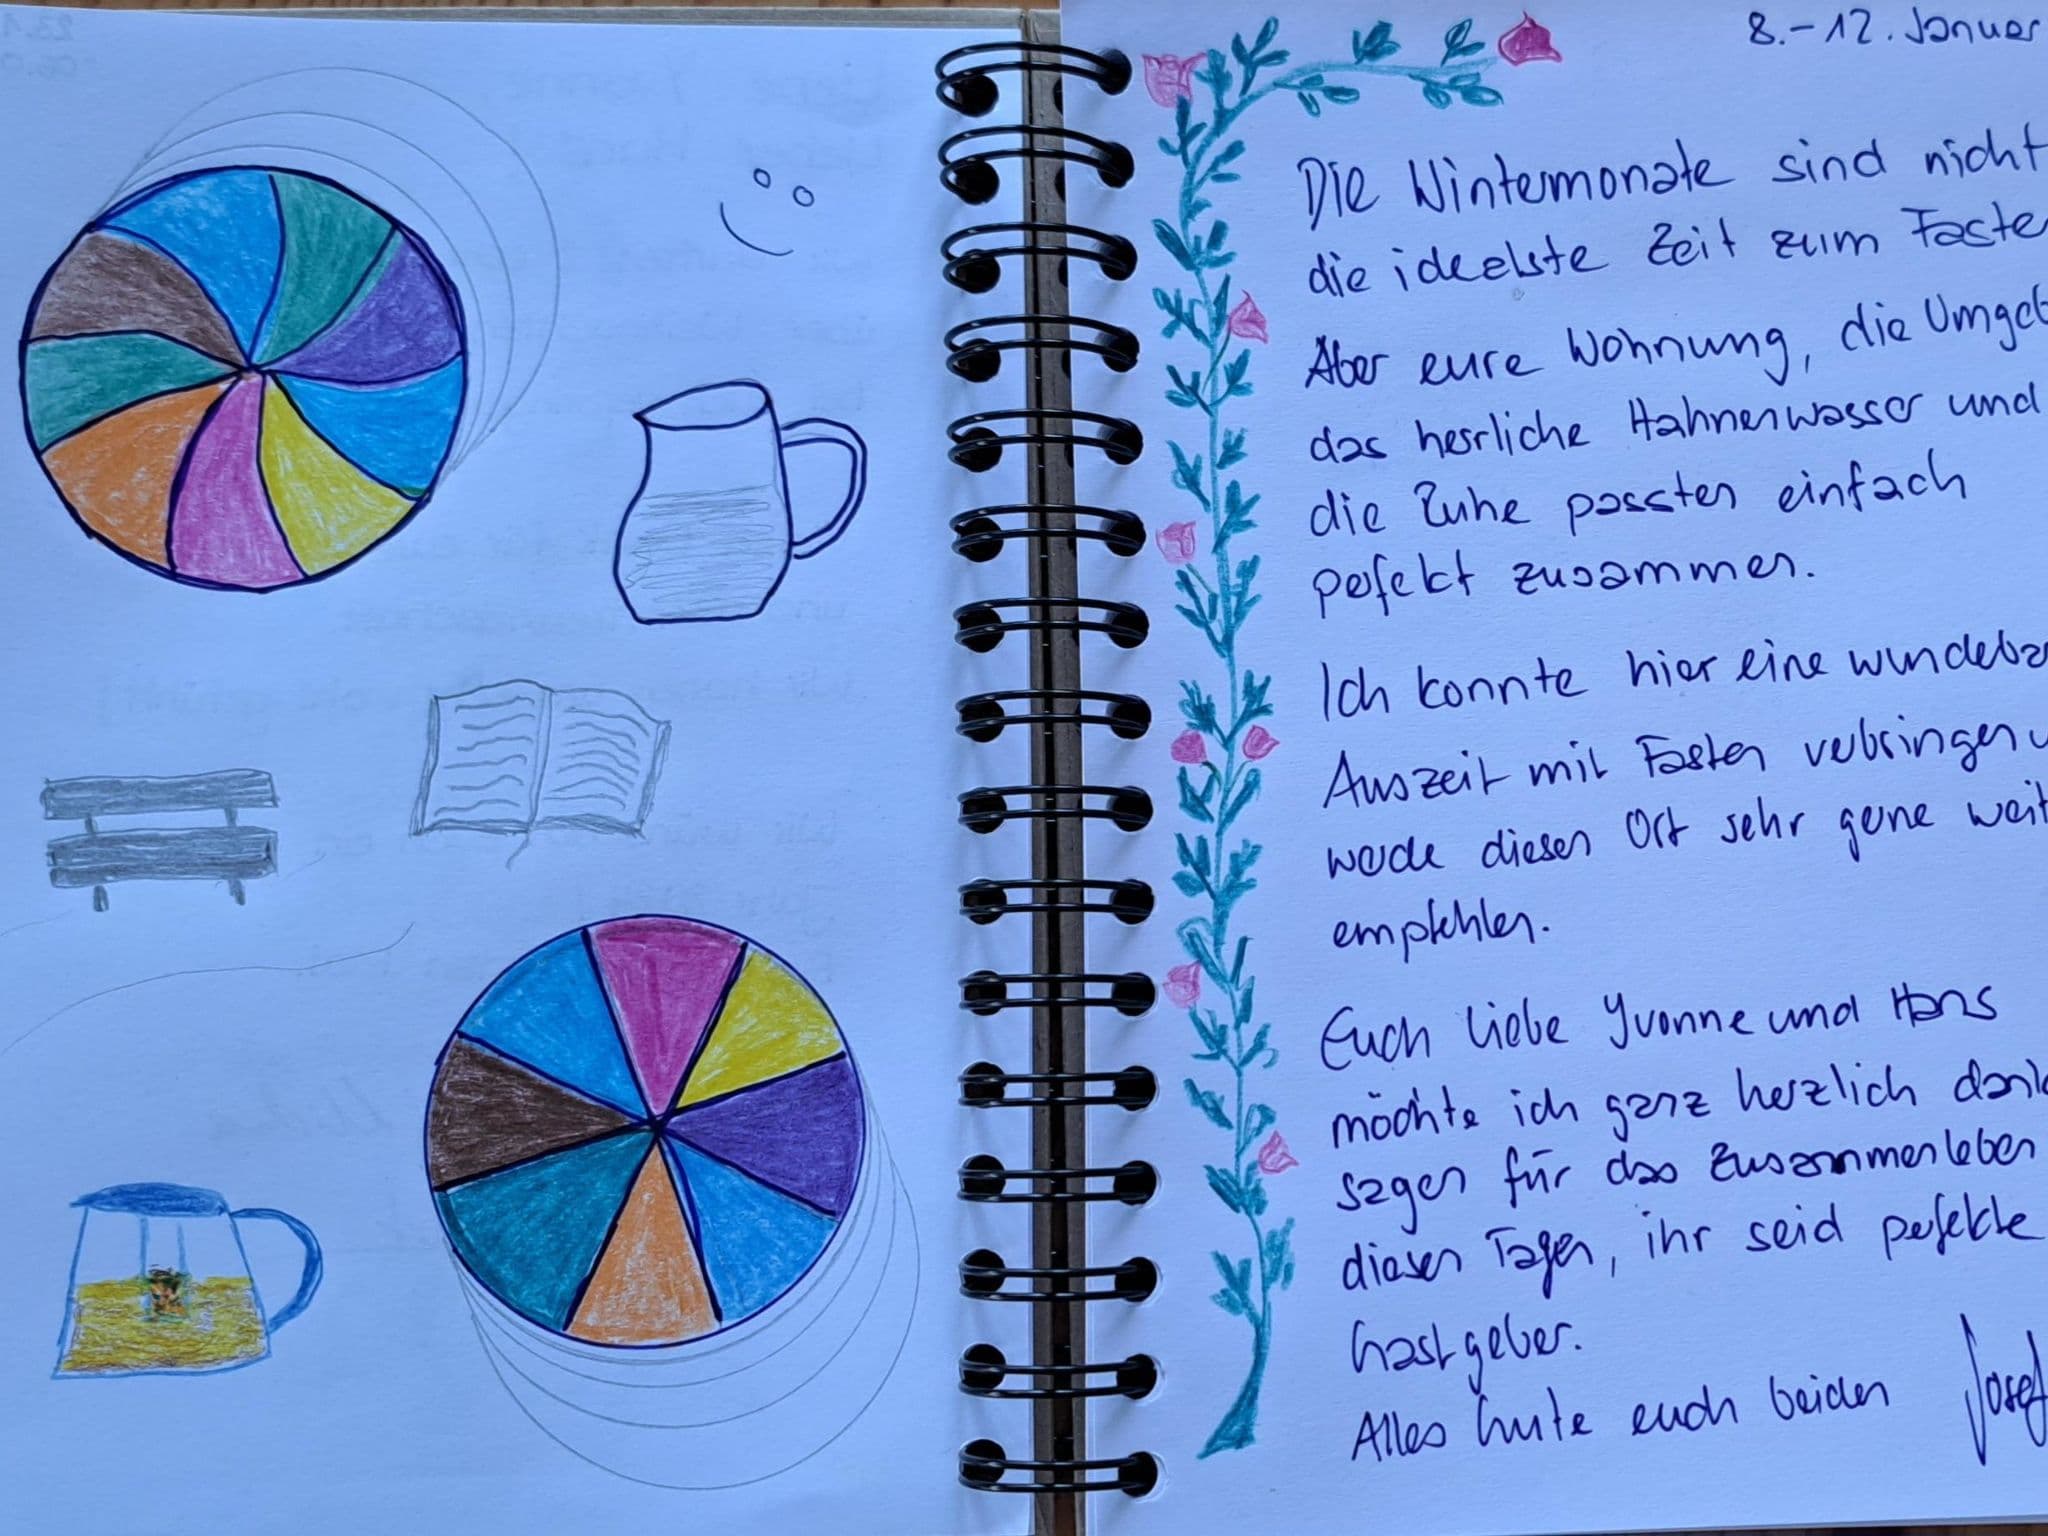 8.-12. Januar
Die Wintermonate sind nicht
die idealste Zeit zum Faste
Aber eure Wohnung, die Umgeb
das herrliche Hahnenwasser und
die Ruhe passten einfach
perfekt zusammen.
Ich konnte hier eine wundeba
Auszeit mit Fasten verbringen u
werde diesen Ort sehr gerne weit
empfehlen.
Euch liebe Yvonne und Hans
möchte ich ganz herzlich dank
sagen für das Zusammenleben
diesen Tagen, ihr seid perfekte
Gastgeber.
Alles Gute euch beiden Josef